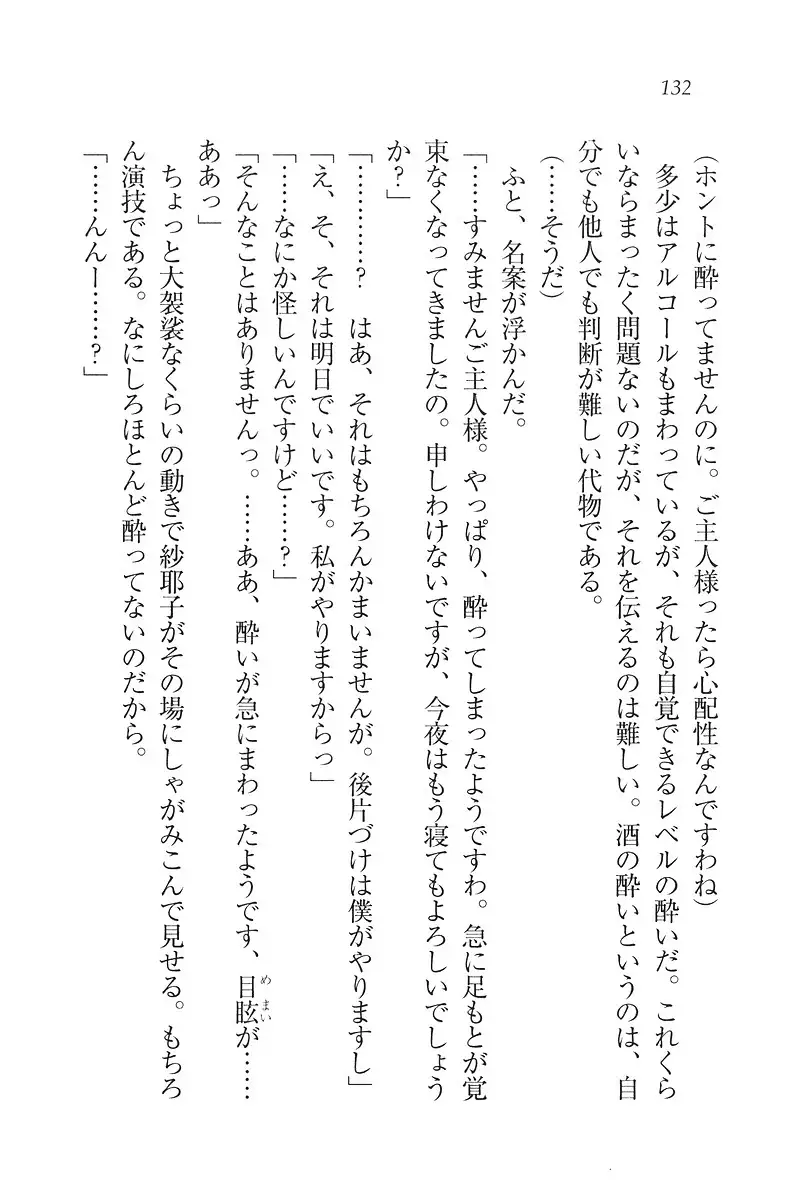 132
（ホントに酔ってませんのに。ご主人様ったら心配性なんですわね）
　多少はアルコールもまわっているが、それも自覚できるレベルの酔いだ。これくら
いならまったく問題ないのだが、それを伝えるのは難しい。酒の酔いというのは、自
分でも他人でも判断が難しい代物である。
（……そうだ）
　ふと、名案が浮かんだ。
「……すみませんご主人様。やっぱり、酔ってしまったようですわ。急に足もとが覚
束なくなってきましたの。申しわけないですが、今夜はもう寝てもよろしいでしょう
か？」
「…………？　はあ、それはもちろんかまいませんが。後片づけは僕がやりますし」
「え、そ、それは明日でいいです。私がやりますからっ」
「……なにか怪しいんですけど……？」
「そんなことはありませんっ。……ああ、酔いが急にまわったようです、目眩が……
めまい
ああっ」
　ちょっと大袈裟なくらいの動きで紗耶子がその場にしゃがみこんで見せる。もちろ
ん演技である。なにしろほとんど酔ってないのだから。
「……んんー……？」